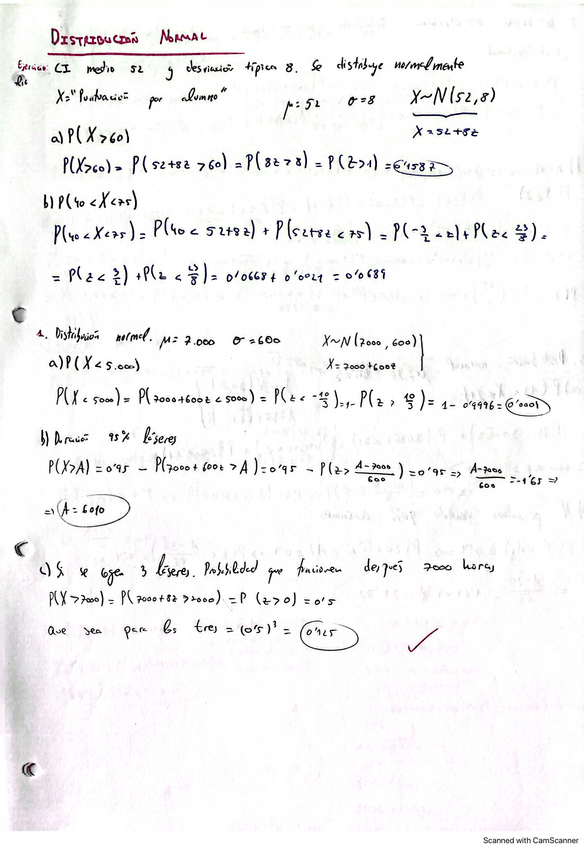 DISTRIBUCIÓN NORMAL
Ejercicio: CI medio 52 y desviación típica 8. Se distribuye normalmente
X="Puntuación por alumno" μ=52 σ=8 X~N(52,8)
X=52+8z
a) P(X>60)
P(X>60) = P(52+8z >60) = P(8z >8) = P(Z>1) = 0'1587
b) P(40 <X<75)
P(40<X<75) = P(40 < 52+8z) + P(52+8z < 75) = P(-3/2 <z) + P(z< 23/8) =
= P(z < 3/2) + P(z < 23/8) = 0'0668 + 0'0021 = 0'0689
1. Distribución normal. μ= 7.000 σ=600 X~N(7000, 600)
a) P(X < 5.000) X= 7000+600z
P(X < 5000) = P(7000+600z < 5000) = P(z < -10/3) =1- P(z > 10/3) = 1- 0'9996= 0'0001
b) Duración 95% láseres
P(X>A) = 0'95 - P(7000+600z > A) = 0'95 - P(z> A-7000/600) = 0'95 => A-7000/600 = -1'65 =>
=> A = 6010
c) Si se cogen 3 láseres. Probabilidad que funcionen después 7000 horas
P(X >7000) = P(7000+8z >7000) = P (z >0) = 0'5
Que sea para los tres = (0'5)³ = 0'125
Scanned with CamScanner